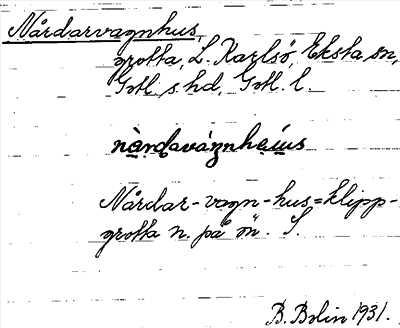 Nårdarvagnhus,
grotta, L. Karlsö, Eksta sn,
Gotl. s. hd, Gotl. l.
nårdavágnhəíus
Nårdar-vagn-hus = klipp-
grotta n. på ön. S.
B. Bolin 1931.